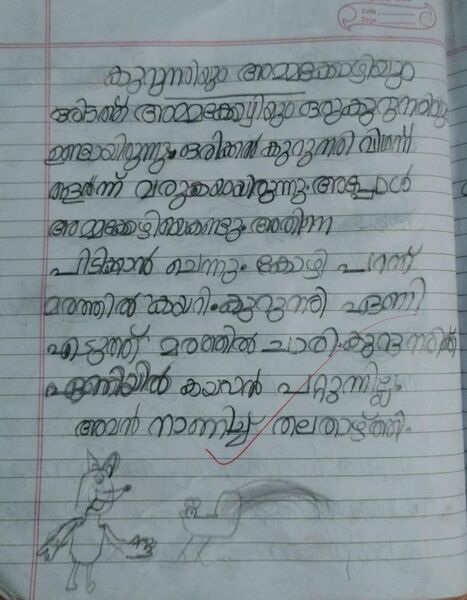 Date
Page
കുറുനരിയും അമ്മക്കോഴിയും
ഒരിടത്ത് അമ്മക്കോഴിയും ഒരു കുറുനരിയും
ഉണ്ടായിരുന്നു. ഒരിക്കൽ കുറുനരി വിശന്ന്
തളർന്ന് വരുകയായിരുന്നു. അപ്പോൾ
അമ്മക്കോഴിയെ കണ്ടു. അതിനെ
പിടിക്കാൻ ചെന്നു. കോഴി പറന്ന്
മരത്തിൽ കയറി. കുറുനരി ഏണി
എടുത്ത് മരത്തിൽ ചാരി. കുറുനരിക്ക്
ഏണിയിൽ കയറാൻ പറ്റുന്നില്ല.
അവൻ നാണിച്ച് തലതാഴ്ത്തി.